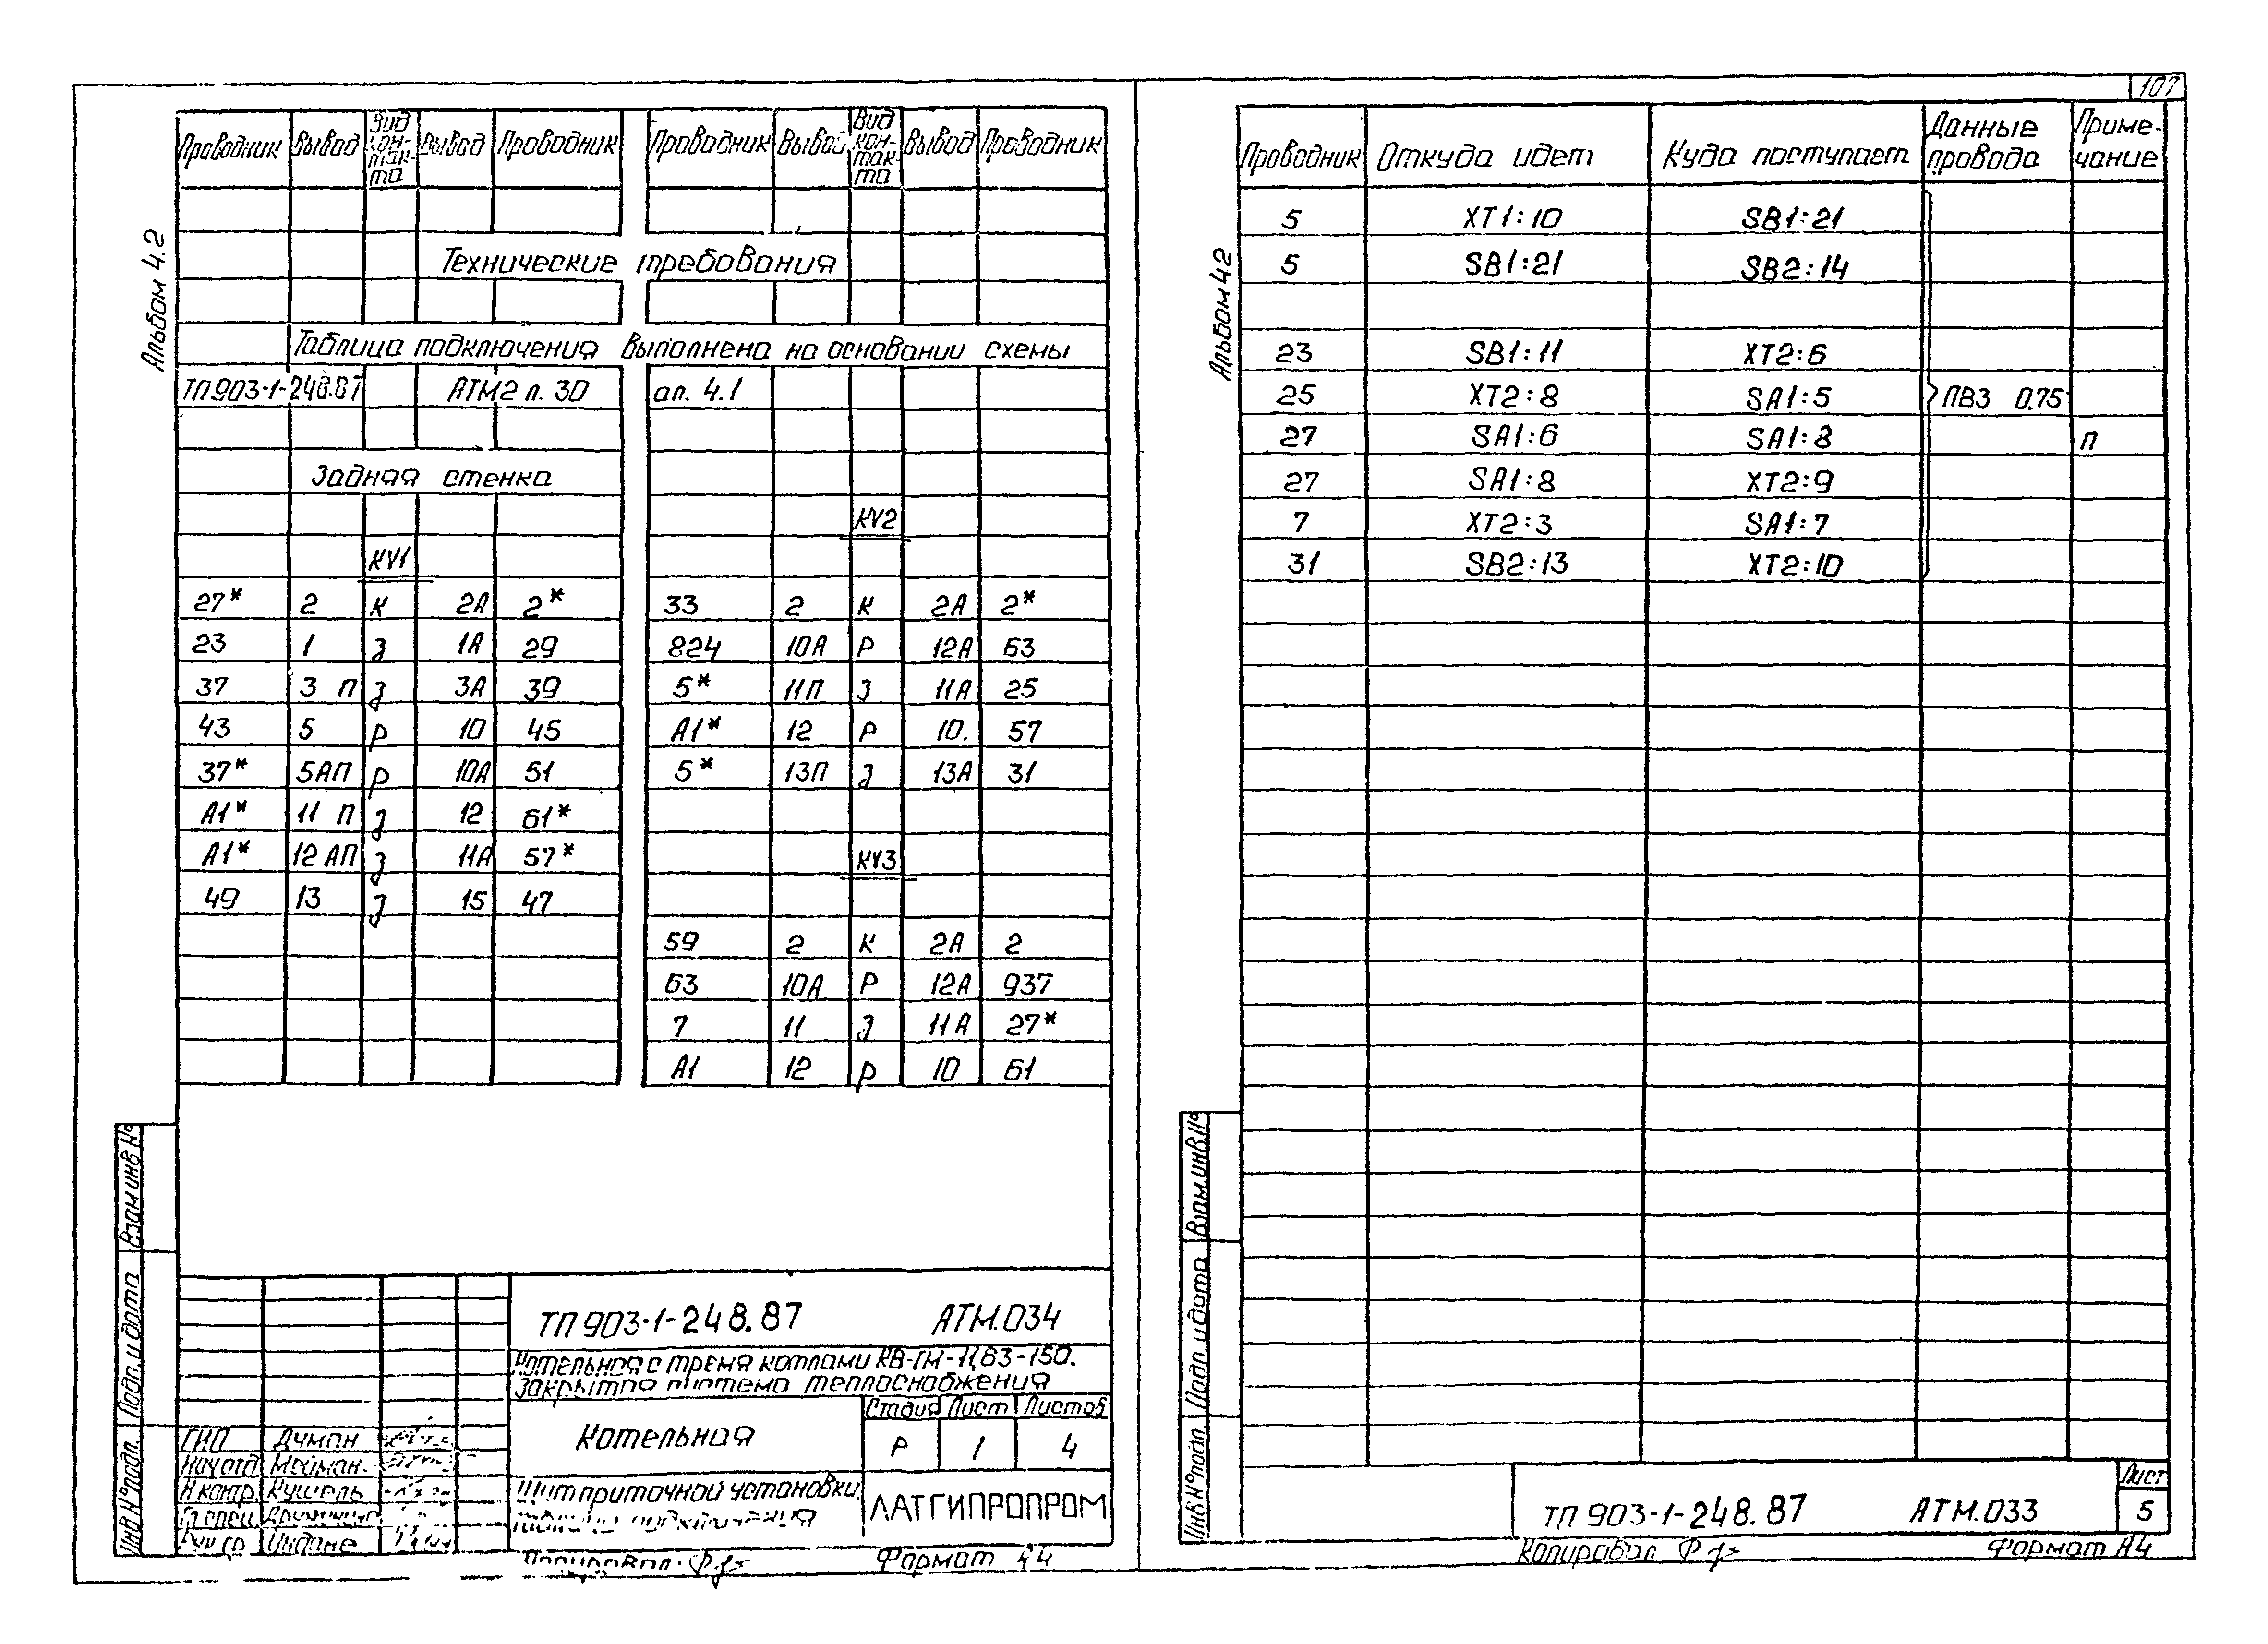 107
Альбом 4.2
Проводник Вывод Вид кон-так-та Вывод Проводник Проводник Вывод Вид кон-так-та Вывод Проводник
Технические требования
Таблица подключения выполнена на основании схемы
ТП903-1-248.87 АТМ2 л. 30 ал. 4.1
Задная стенка
KV1
27* 2 К 2А 2*
23 1 З 1А 29
37 3 П З 3А 39
43 5 Р 10 45
37* 5АП Р 10А 51
А1* 11 П З 12 61*
А1* 12 АП З 11А 57*
49 13 З 15 47
KV2
33 2 К 2А 2*
824 10А Р 12А 63
5* 11П З 11А 25
А1* 12 Р 10. 57
5* 13П З 13А 31
KV3
59 2 К 2А 2
63 10А Р 12А 937
7 11 З 11А 27*
А1 12 Р 10 61
Взам.инв.№
Подп. и дата
Инв.№ подл.
ТП903-1-248.87 АТМ.034
Котельная с тремя котлами КВ-ГМ-11,63-150.
Закрытая система теплоснабжения
Котельная
Стадия Лист Листов
Р 1 4
Щит приточной установки.
Таблица подключения
ЛАТГИПРОПРОМ
ГИП Думан
Нач.отд Мейман
Н.контр. Кушель
Гл.спец.
Рук.гр.
Копировал: Формат А4
Альбом 4.2
Проводник Откуда идет Куда поступает Данные провода Приме-чание
5 XT1:10 SB1:21
5 SB1:21 SB2:14
23 SB1:11 XT2:6
25 XT2:8 SA1:5 ПВ3 0.75
27 SA1:6 SA1:8 П
27 SA1:8 XT2:9
7 XT2:3 SA1:7
31 SB2:13 XT2:10
Взам.инв.№
Подп. и дата
Инв.№ подл.
ТП903-1-248.87 АТМ.033
Лист
5
Копировал Формат А4